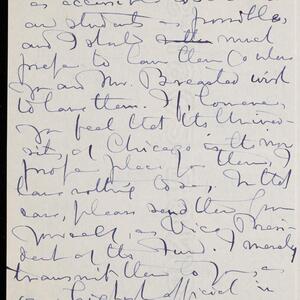 as accessible
and students as possible,
and I should much
prefer to have them go where
you and Mr. Breasted wish
to have them. If, however,
you feel that the Univer-
sity of Chicago is the more
proper place for them, I
have nothing to say. In that
case, please send them from
yourself, as Vice Presi-
dent of the Fund. I merely
transmit them to you, as
highest official in